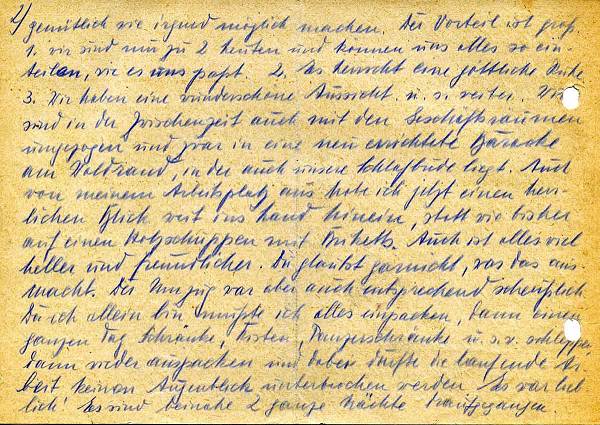 2/ gemütlich wie irgend möglich machen. Der Vorteil ist groß.
1. wir sind nun zu 2 Leuten und können uns alles so ein-
teilen, wie es uns paßt. 2. Es herrscht eine göttliche Ruhe.
3. Wir haben eine wunderschöne Aussicht. u. s. weiter. Wir
sind in der Zwischenzeit auch mit den Geschäftsräumen
umgezogen und zwar in eine neu errichtete Baracke
am Waldrand, in der auch unsere Schlafbude liegt. Auch
von meinem Arbeitsplatz aus habe ich jetzt einen herr-
lichen Blick weit ins Land hinein, statt wie bisher
auf einen Holzschuppen mit Briketts. Auch ist alles viel
heller und freundlicher. Du glaubst garnicht, was das aus-
macht. Der Umzug war aber auch entsprechend scheußlich.
Da ich allein bin mußte ich alles einpacken, dann einen
ganzen Tag Schränke, Kisten, Panzerschränke u. s. w. schleppen
dann wieder auspacken und dabei durfte die laufende Ar-
beit keinen Augenblick unterbrochen werden. Es war lieb-
lich! Es sind beinahe 2 ganze Nächte draufgegangen.